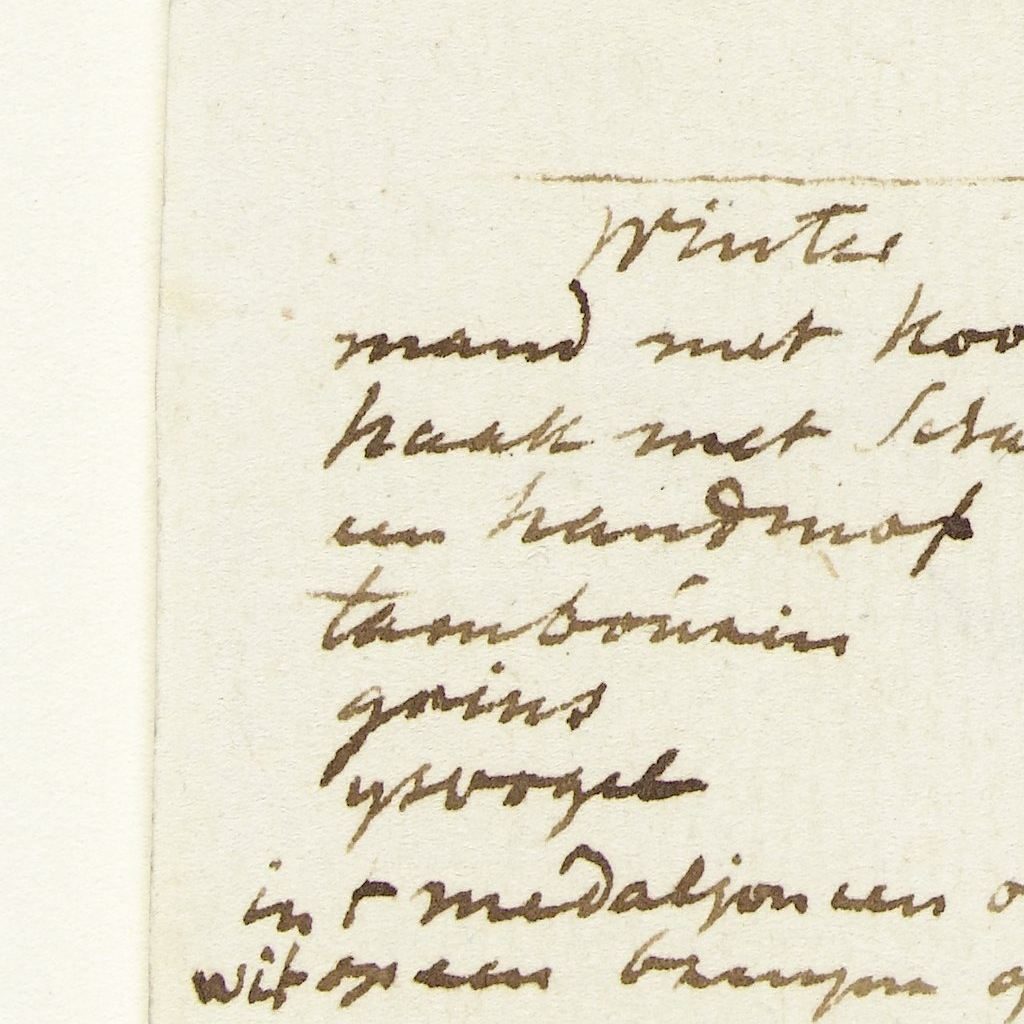 Winter
mand met koo
haak met Scha
een handmof
tambourin
grins
ysvogel
in t medaljon een o
wit op een bruyn g